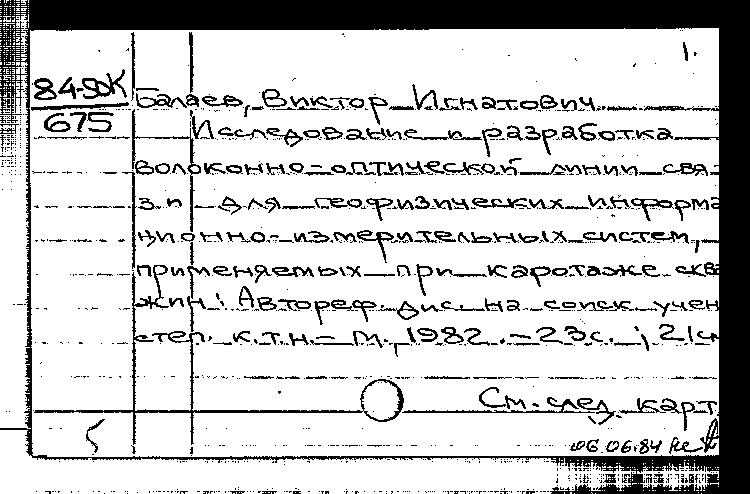 1.
84-5DK
675
Балаев, Виктор Игнатович
Исследование и разработка
волоконно-оптической линии свя-
зи для геофизических информа
ционно-измерительных систем,
применяемых при каротаже сква
жин: Автореф. дис. на соиск учен
степ. к.т.н.- М., 1982.-23с.; 21см
См. след. карт
5
06.06.84